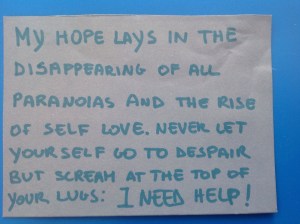 MY HOPE LAYS IN THE
DISAPPEARING OF ALL
PARANOIAS AND THE RISE
OF SELF LOVE. NEVER LET
YOURSELF GO TO DESPAIR
BUT SCREAM AT THE TOP OF
YOUR LUGS: I NEED HELP!